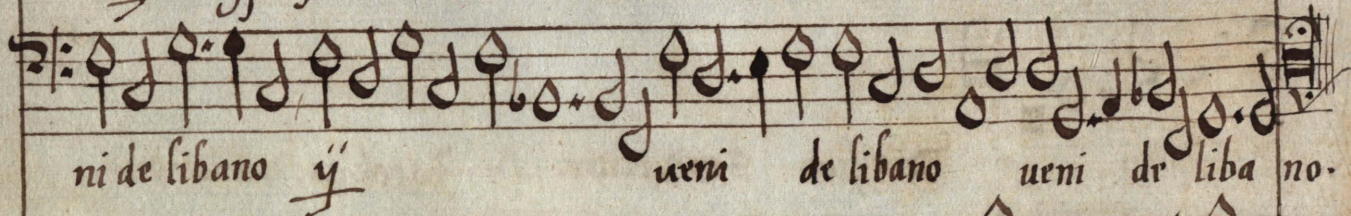 ni de libano ij ueni de libano ueni de libano.